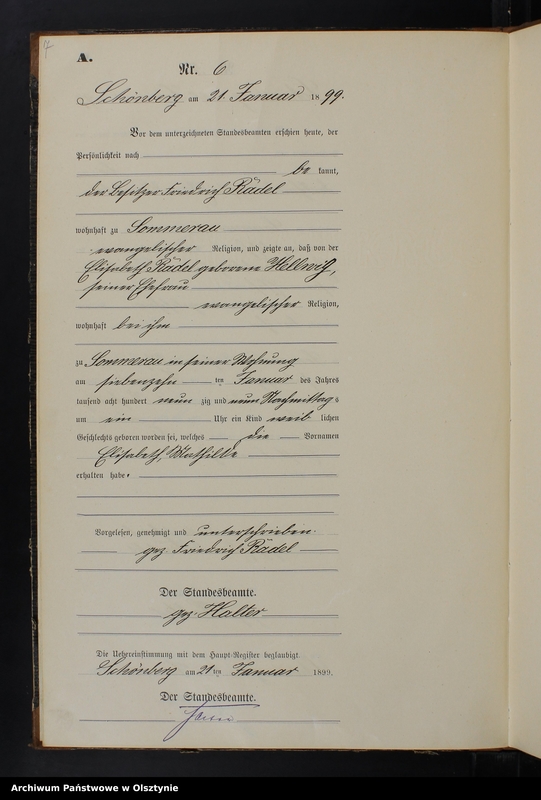 4
A.
Nr. 6
Schönberg am 21. Januar 1899.
Vor dem unterzeichneten Standesbeamten erschien heute, der
Persönlichkeit nach
be kannt,
der Besitzer Friedrich Rädel
wohnhaft zu Sommerau
evangelischer Religion, und zeigte an, daß von der
Elisabeth Rädel geborene Hellwig,
seiner Ehefrau
evangelischer Religion,
wohnhaft bei ihm
zu Sommerau in seiner Wohnung
am siebenzehn ten Januar des Jahres
tausend acht hundert neun zig und neun Nachmittag s
um ein Uhr ein Kind weib lichen
Geschlechts geboren worden sei, welches die Vornamen
Elisabeth, Mathilde
erhalten habe.
Vorgelesen, genehmigt und unterschrieben.
gez Friedrich Rädel
Der Standesbeamte.
gez. Halter
Die Uebereinstimmung mit dem Haupt-Register beglaubigt
Schönberg am 21 ten Januar 1899.
Der Standesbeamte.
Archiwum Państwowe w Olsztynie